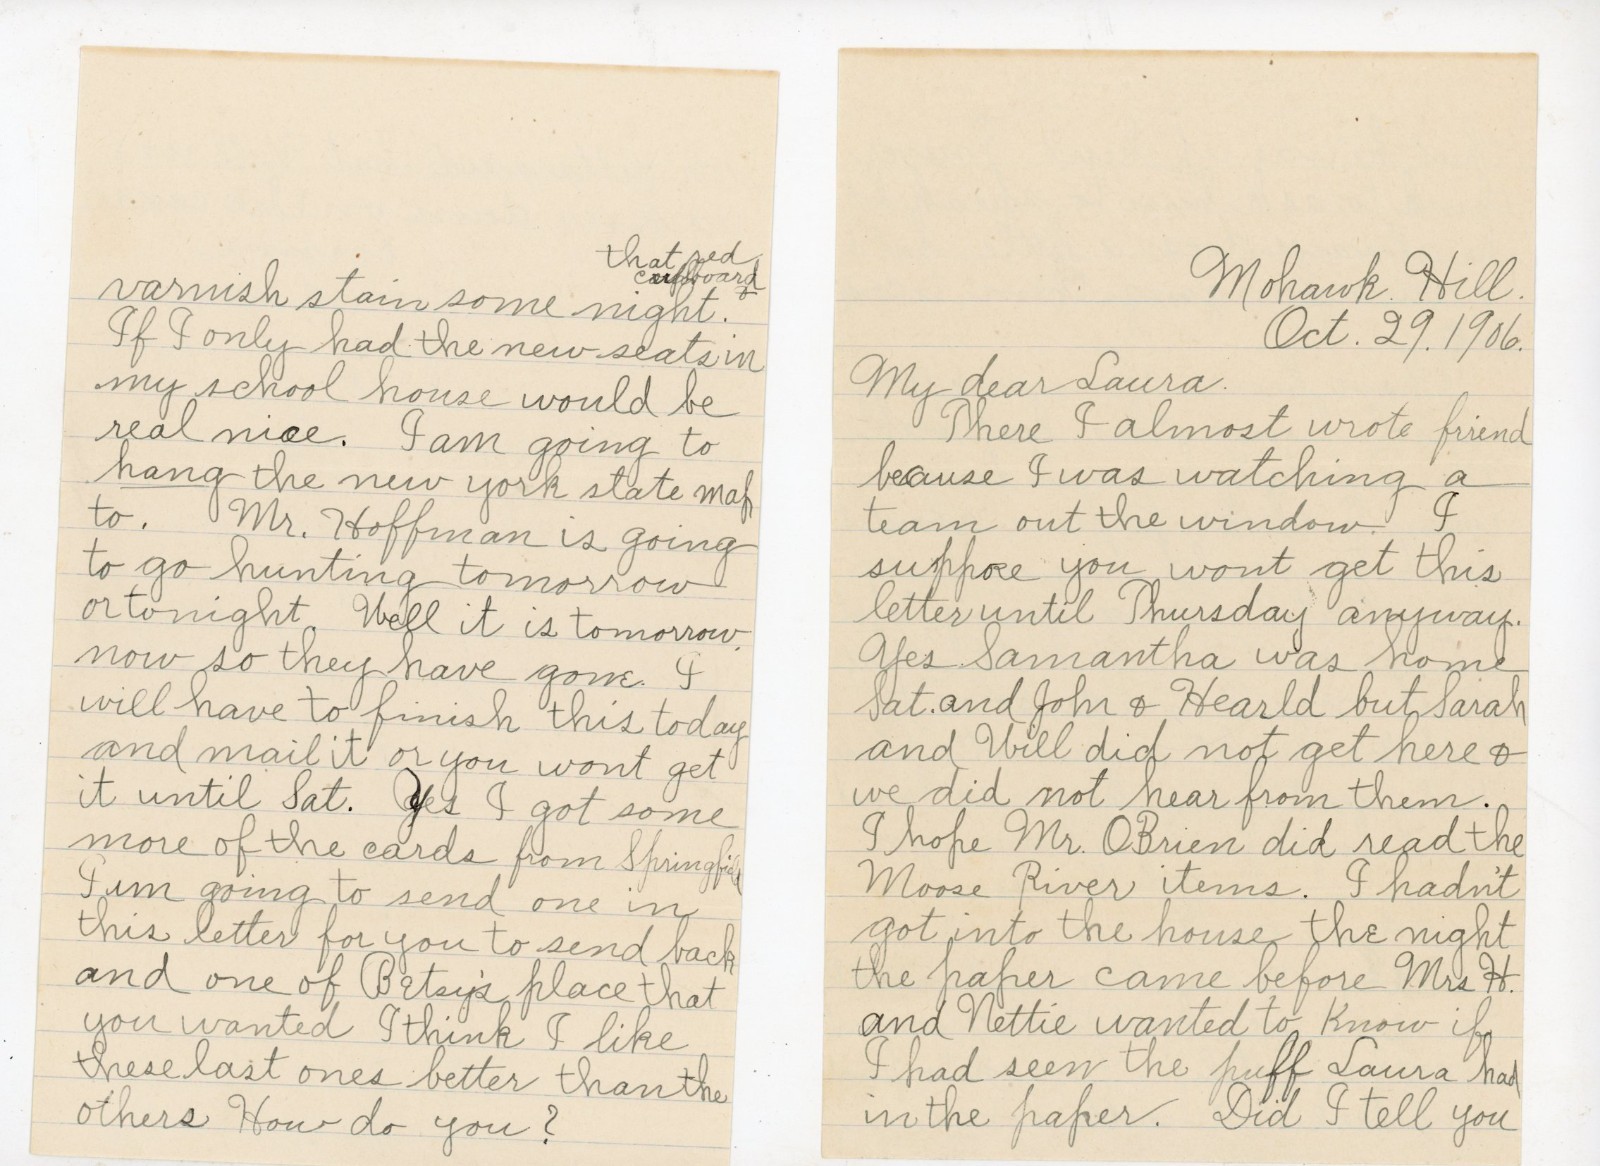 Mohawk Hill.
Oct. 29. 1906.
My dear Laura.
There I almost wrote friend
because I was watching a
team out the window. I
suppose you wont get this
letter until Thursday anyway.
Yes Samantha was home
Sat. and John & Hearld but Sarah
and Will did not get here &
we did not hear from them.
I hope Mr. OBrien did read the
Moose River items. I hadn't
got into the house the night
the paper came before Mrs H.
and Nettie wanted to know if
I had seen the puff Laura had
in the paper. Did I tell you
that red
cupboard
&
varnish stain some night.
If I only had the new seats in
my school house would be
real nice. I am going to
hang the new york state map
to. Mr. Hoffman is going
to go hunting tomorrow
or tonight. Well it is tomorrow
now so they have gone. I
will have to finish this today
and mail it or you wont get
it until Sat. Yes I got some
more of the cards from Springfield
I am going to send one in
this letter for you to send back
and one of Betsy's place that
you wanted I think I like
these last ones better than the
others How do you?